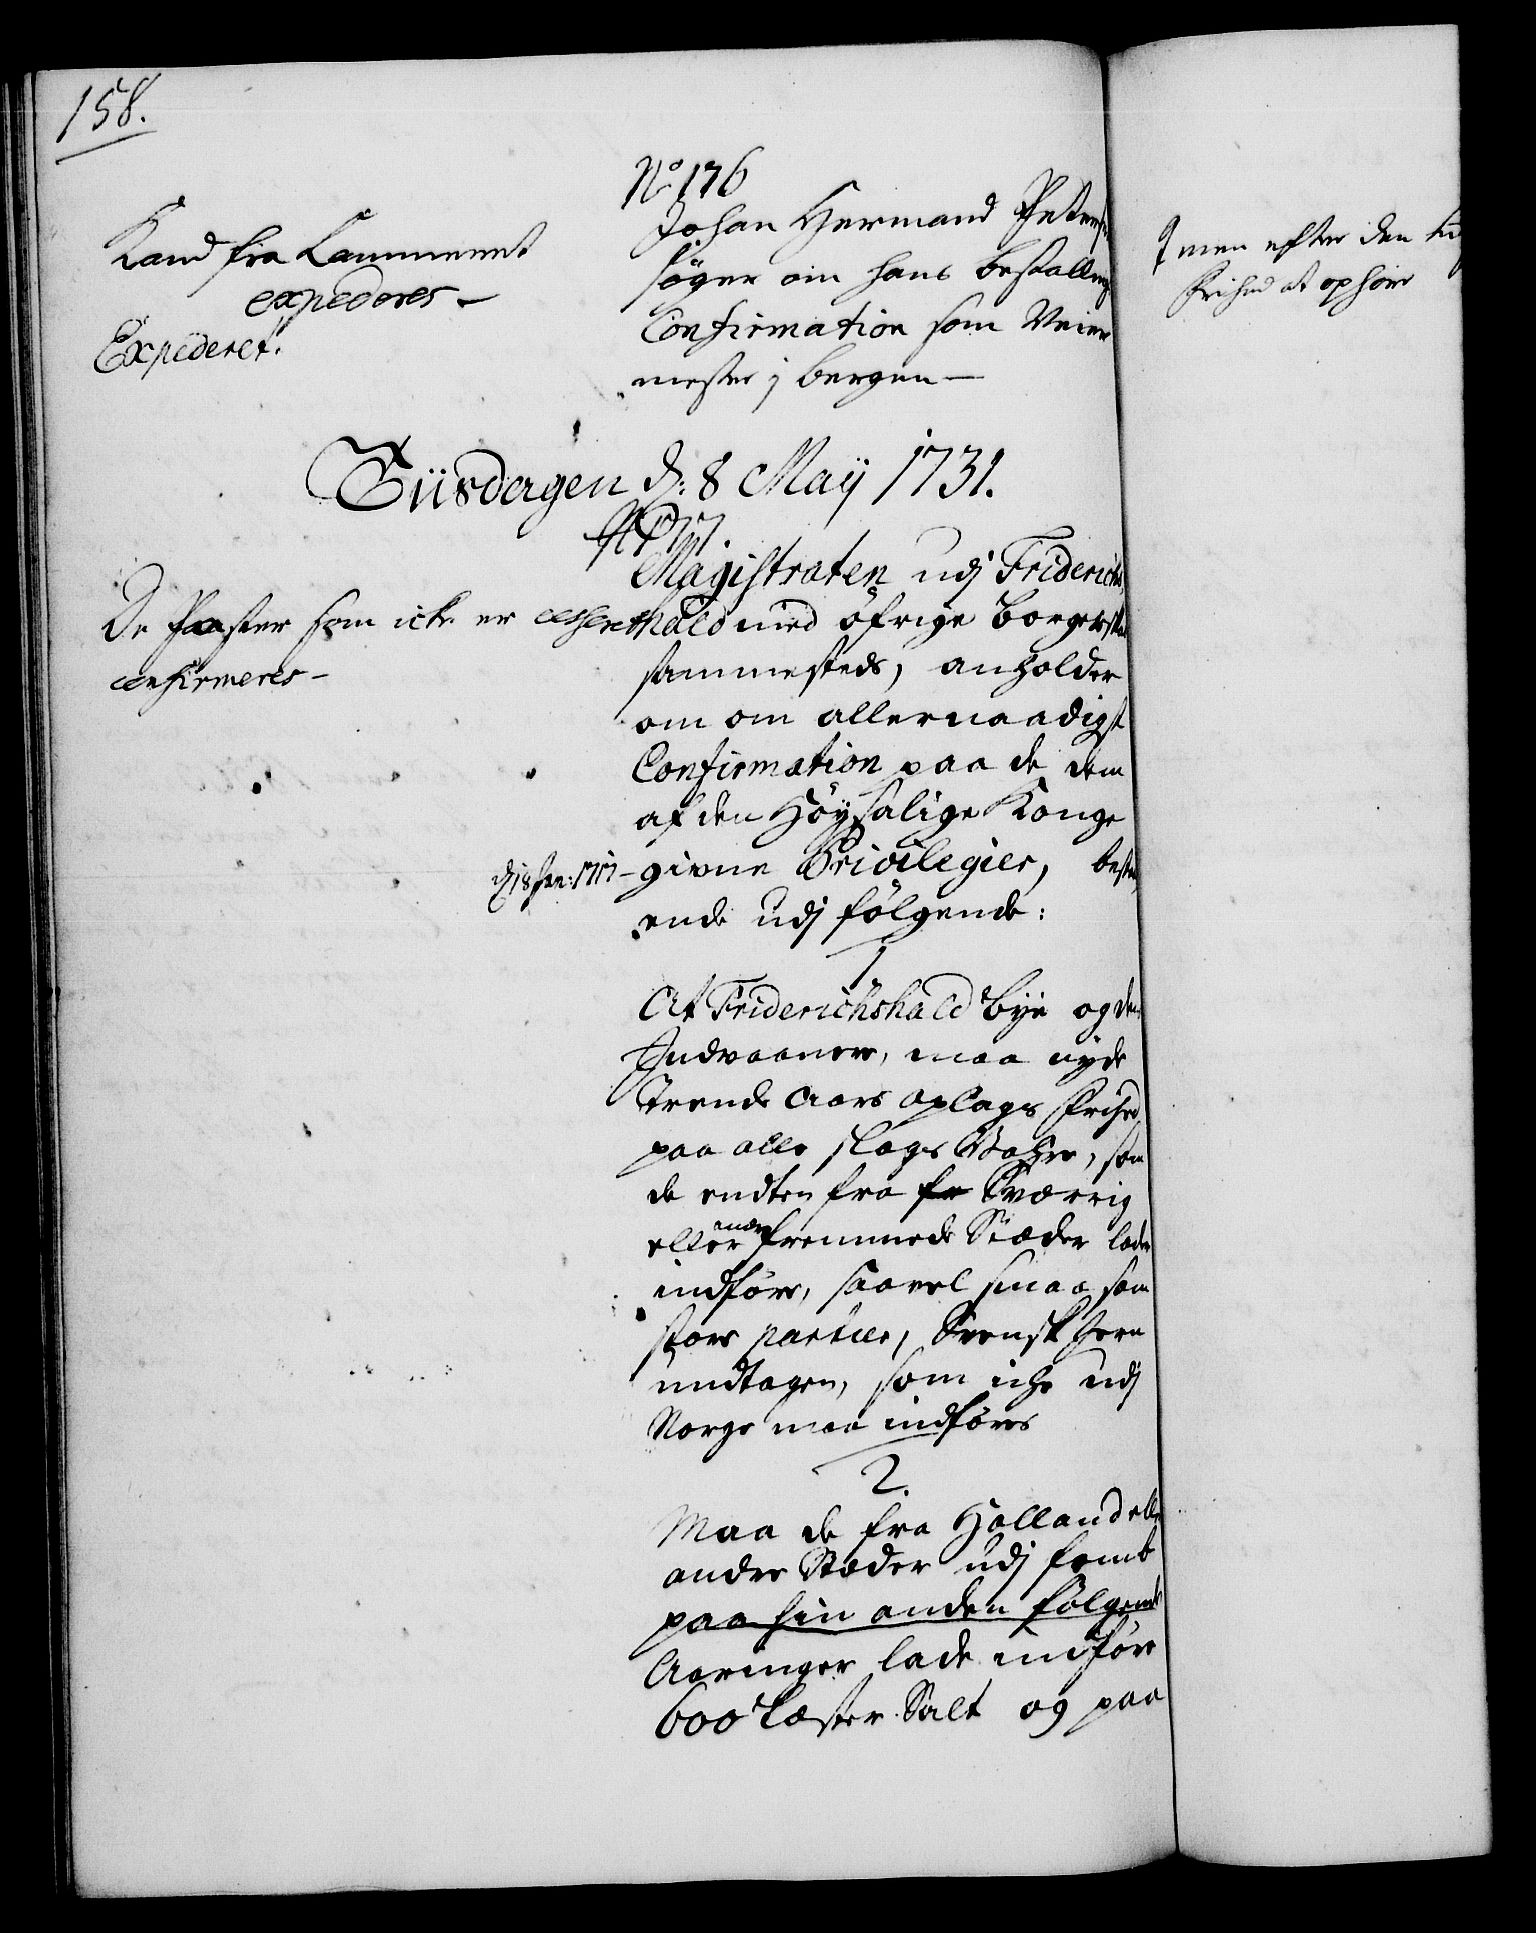 158.
No 176
Johan Hermand Peters
søger om hans bestalling
Confirmation som Veier
mester j bergen —
Kand fra Cammeret
expederes —
Expederet.
Tiisdagen d: 8 Maij 1731.
No 177
Magistraten udj Friderichs
hald med øfrige borgerska
sammesteds, anholder
om om allernaadigst
Confirmation paa de dem
af den Höysalige Konge
givne Privilegier, besta
ende udj følgende:
De Poster som icke er
confirmeres —
d 18 Jan: 1717 —
1
At Friderichshald bÿe og dens
Indvaanere, maa nyde
trende Aars oplags Frihed
paa alle slags Vahre, som
de endten fra fr Sværrig
eller andre fremmede Stæder lader
indføre, saavel smaa som
store partier, Svensk Jern
undtagen, som iche udj
Norge maa indføres
2.
Maa de fra Holland elle
andre Stæder udj femb
paa hin anden følgende
Aaringer lade indføre
600 Læster Salt og paa
men efter den tid
Frihed at ophøre